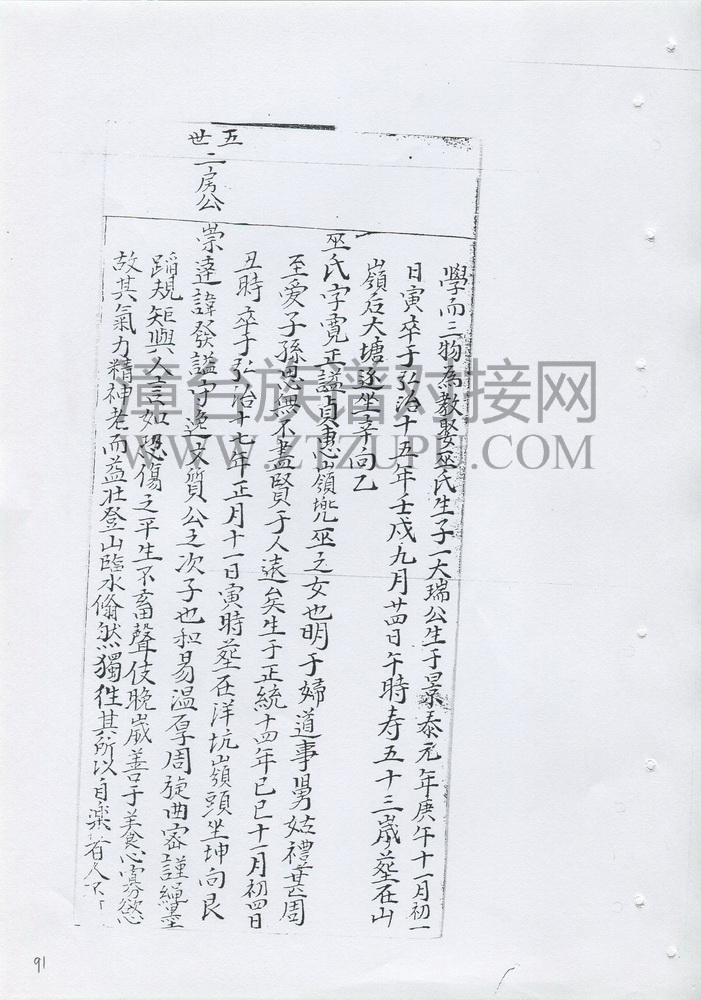 學而三物為教娶巫氏生子一大瑞公生于景泰元年庚午十一月初一
日寅卒于弘治十五年壬戌九月廿四日午時寿五十三歲葬在山
嶺后大塘逐坐辛向乙
巫氏字寬正謚貞惠嶺兜巫之女也明于婦道事舅姑禮甚周
至愛子孫恩無不盡賢于人遠矣生于正統十四年己巳十一月初四日
丑時卒于弘治十七年正月十一日寅時葬在洋坑嶺頭坐坤向艮
五世
二房公
崇達諱發謚守逸文質公之次子也和易温厚周旋曲密謹繩墨
蹈規矩與人言如恐傷之平生不畜聲伎晚歲善于美食心寡慾
故其氣力精神老而益壯登山臨水翛然獨往其所以自樂者人不
漳台族谱对接网
WWW.ZTZUPU.COM
91